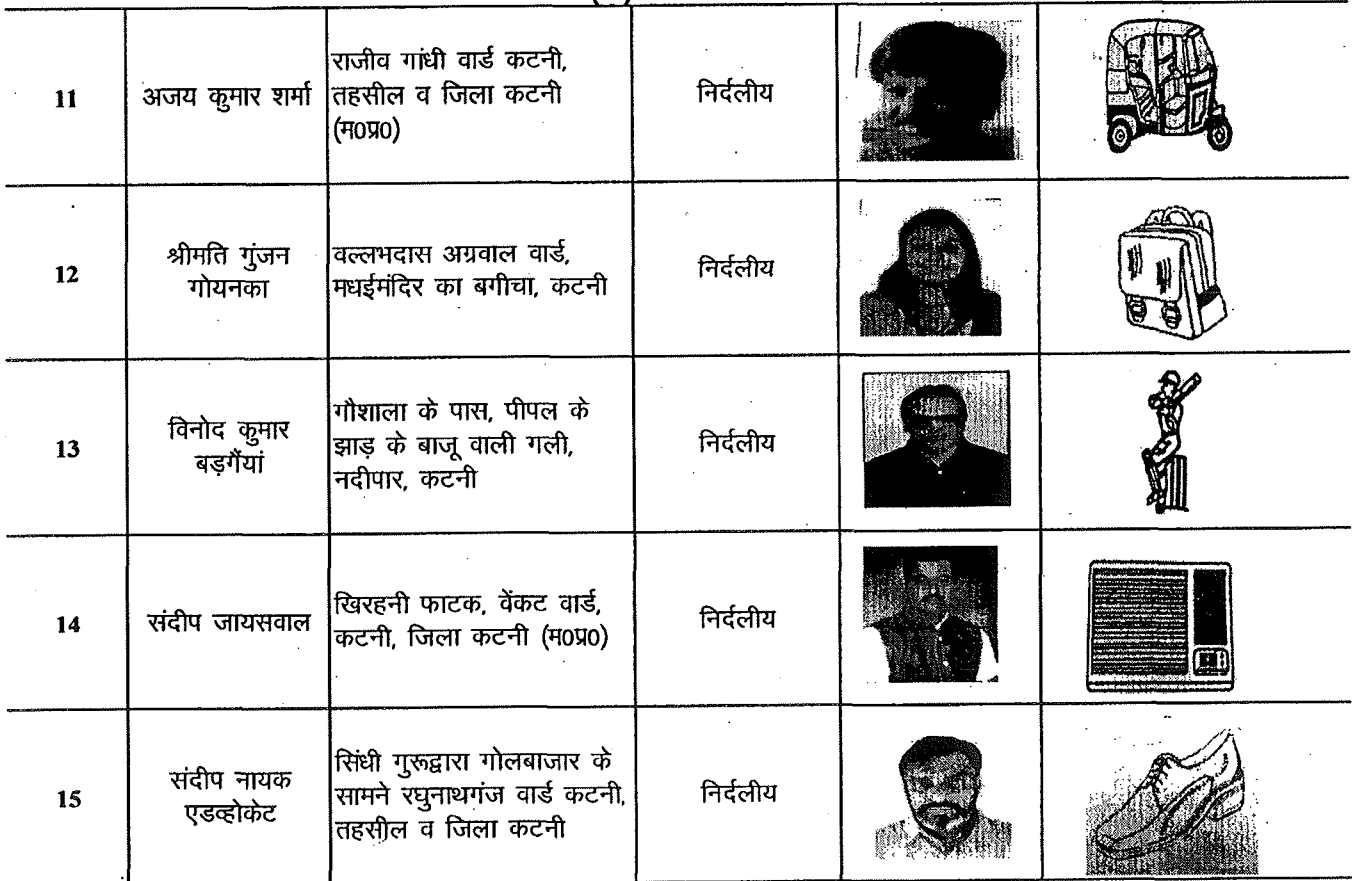 11
अजय कुमार शर्मा
राजीव गांधी वार्ड कटनी,
तहसील व जिला कटनी
(म0प्र0)
निर्दलीय
12
श्रीमति गुंजन
गोयनका
वल्लभदास अग्रवाल वार्ड,
मधईमंदिर का बगीचा, कटनी
निर्दलीय
13
विनोद कुमार
बड़गैंयां
गौशाला के पास, पीपल के
झाड़ के बाजू वाली गली,
नदीपार, कटनी
निर्दलीय
14
संदीप जायसवाल
खिरहनी फाटक, वेंकट वार्ड,
कटनी, जिला कटनी (म0प्र0)
निर्दलीय
15
संदीप नायक
एडव्होकेट
सिंधी गुरूद्वारा गोलबाजार के
सामने रघुनाथगंज वार्ड कटनी,
तहसील व जिला कटनी
निर्दलीय